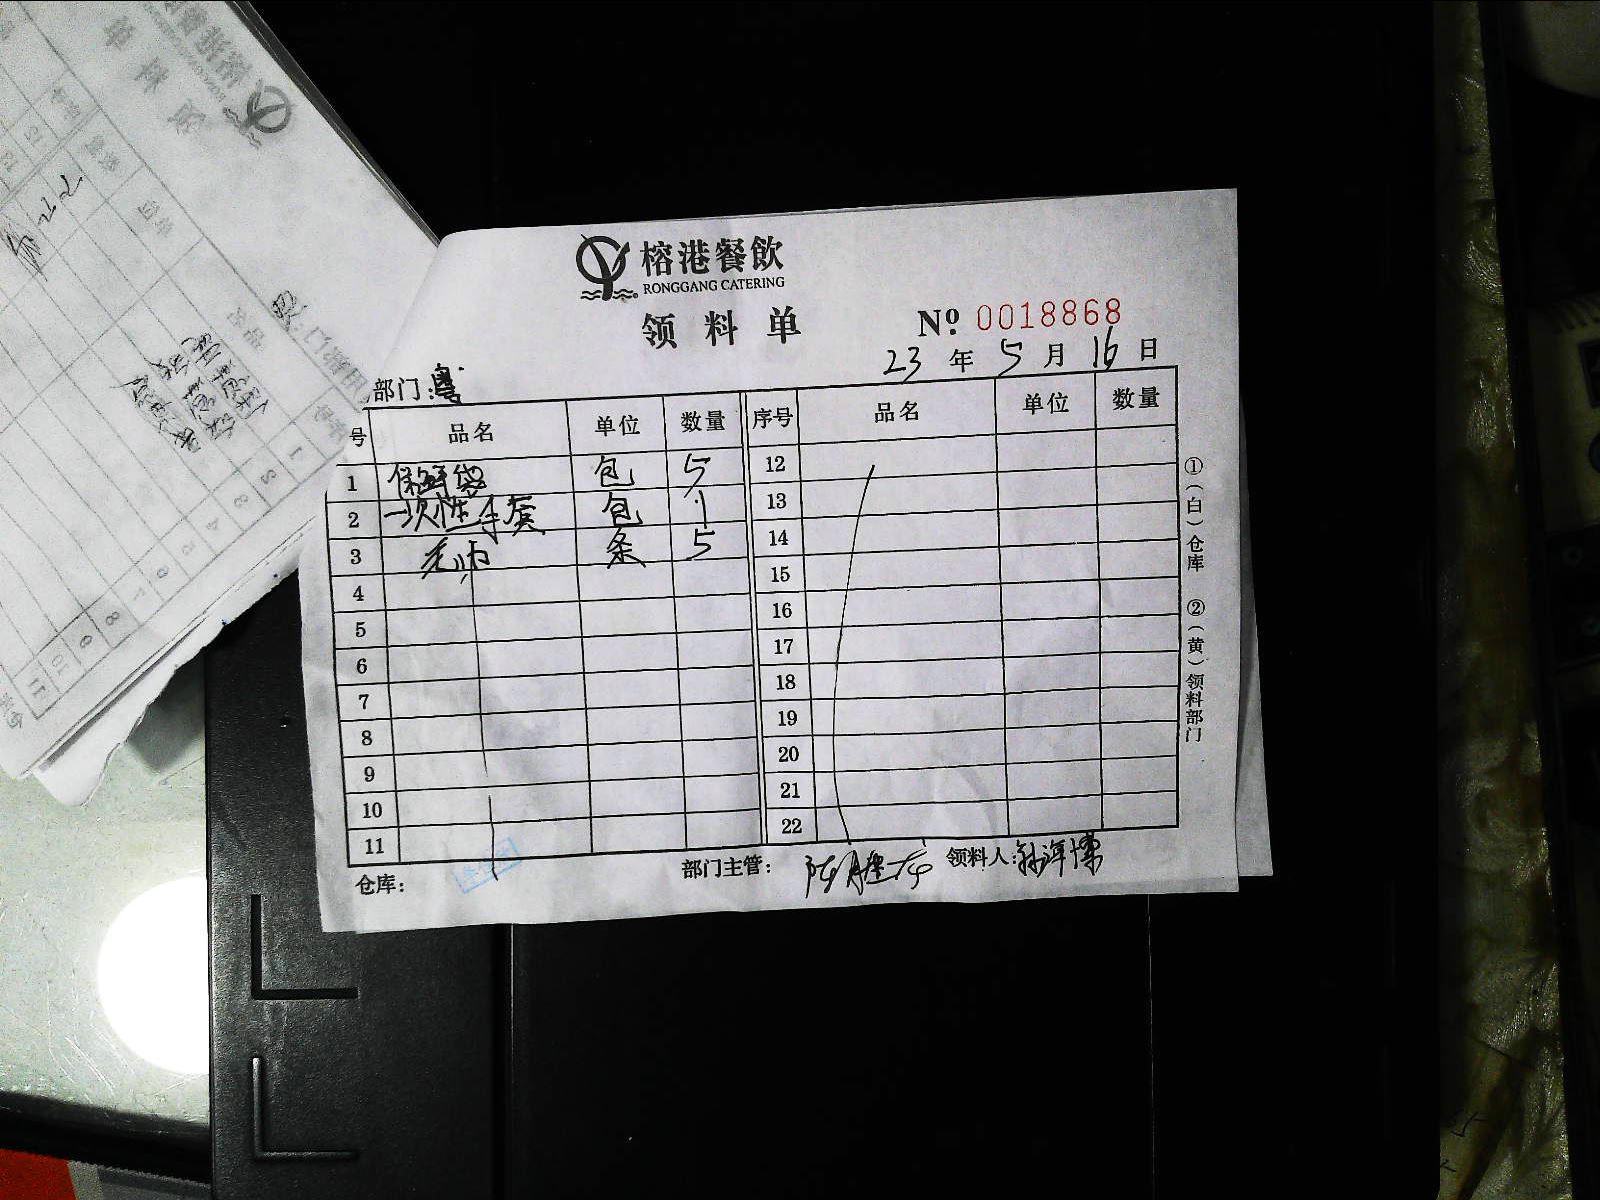 榕港餐飲
RONGGANG CATERING
领料单
Nº 0018868
23 年 5 月 16 日
部门:粤
号 品名 单位 数量 序号 品名 单位 数量
1 保鲜袋 包 5 12
2 一次性手套 包 1 13
3 毛巾 条 5 14
4 15
5 16
6 17
7 18
8 19
9 20
10 21
11 22
仓库: 部门主管: 领料人:
①(白)仓库 ②(黄)领料部门